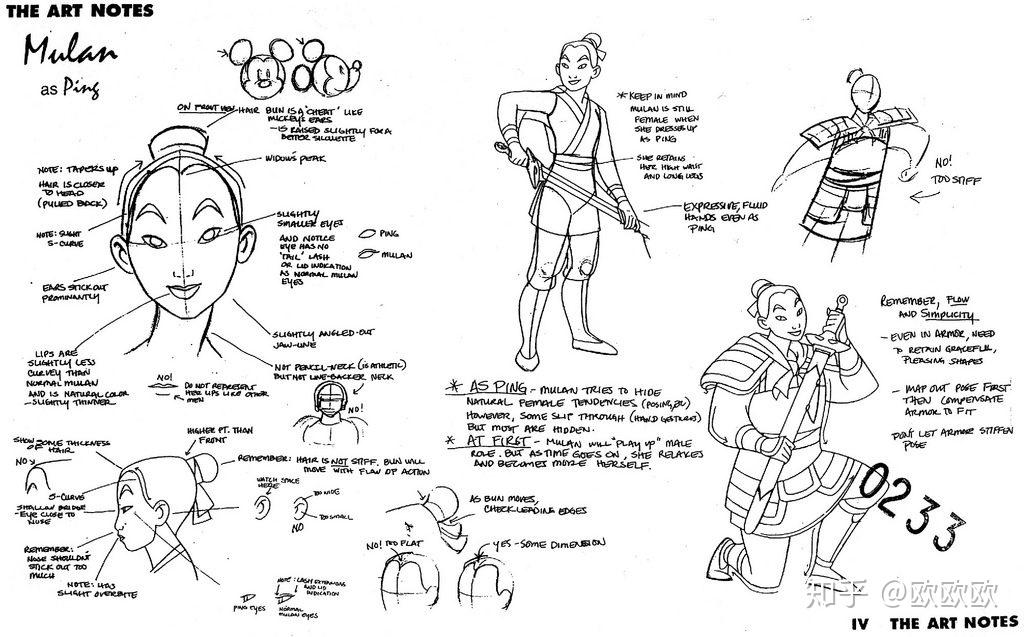 THE ART NOTES
Mulan
as Ping
ON FRONT VIEW HAIR BUN IS A "CHEAT" LIKE
MICKEY'S EARS
- IS RAISED SLIGHTLY FOR A
BETTER SILOUETTE
WIDOW'S PEAK
NOTE: TAPERS UP
HAIR IS CLOSER
TO HEAD
(PULLED BACK)
NOTE: SLIGHT
S-CURVE
EARS STICK OUT
PROMINANTLY
SLIGHTLY
SMALLER EYES
AND NOTICE
EYE HAS NO
"TAIL" LASH
OR LID INDICATION
AS NORMAL MULAN
EYES
PING
MULAN
SLIGHTLY ANGLED-OUT
JAW-LINE
LIPS ARE
SLIGHTLY LESS
CURVEY THAN
NORMAL MULAN
AND IS NATURAL COLOR
- SLIGHTLY THINNER
NO!
DO NOT REPRESENT
HER LIPS LIKE OTHER
MEN
NOT PENCIL-NECK (IS ATHLETIC)
BUT NOT LINE-BACKER NECK
NO!
SHOW SOME THICKNESS
OF HAIR
NO
S-CURVE
SHALLOW BRIDGE
- EYE CLOSE TO
NOSE
REMEMBER:
NOSE SHOULDN'T
STICK OUT TOO
MUCH
NOTE: HAS
SLIGHT OVERBITE
HIGHER PT. THAN
FRONT
REMEMBER: HAIR IS NOT STIFF, BUN WILL
MOVE WITH FLOW OF ACTION
WATCH SPACE
HERE
TOO WIDE
TOO SMALL
NO
NOTE: LASH EXTENSIONS
AND LID
INDICATION
PING EYES
NORMAL
MULAN EYES
AS BUN MOVES,
CHECK LEADING EDGES
NO! TOO FLAT
YES - SOME DIMENSION
* KEEP IN MIND
MULAN IS STILL
FEMALE WHEN
SHE DRESSES UP
AS PING
SHE RETAINS
HER HIGH WAIST
AND LONG LEGS
EXPRESSIVE, FLUID
HANDS EVEN AS
PING
* AS PING - MULAN TRIES TO HIDE
NATURAL FEMALE TENDENCIES (POSING, ETC)
HOWEVER, SOME SLIP THROUGH (HAND GESTURES)
BUT MOST ARE HIDDEN.
* AT FIRST - MULAN WILL "PLAY UP" MALE
ROLE. BUT AS TIME GOES ON, SHE RELAXES
AND BECOMES MORE HERSELF.
NO!
TOO STIFF
REMEMBER, FLOW
AND SIMPLICITY
- EVEN IN ARMOR, NEED
TO RETAIN GRACEFUL,
PLEASING SHAPES
- MAP OUT POSE FIRST
THEN COMPENSATE
ARMOR TO FIT
DON'T LET ARMOR STIFFEN
POSE
0233
知乎 @欧欧欧
IV THE ART NOTES